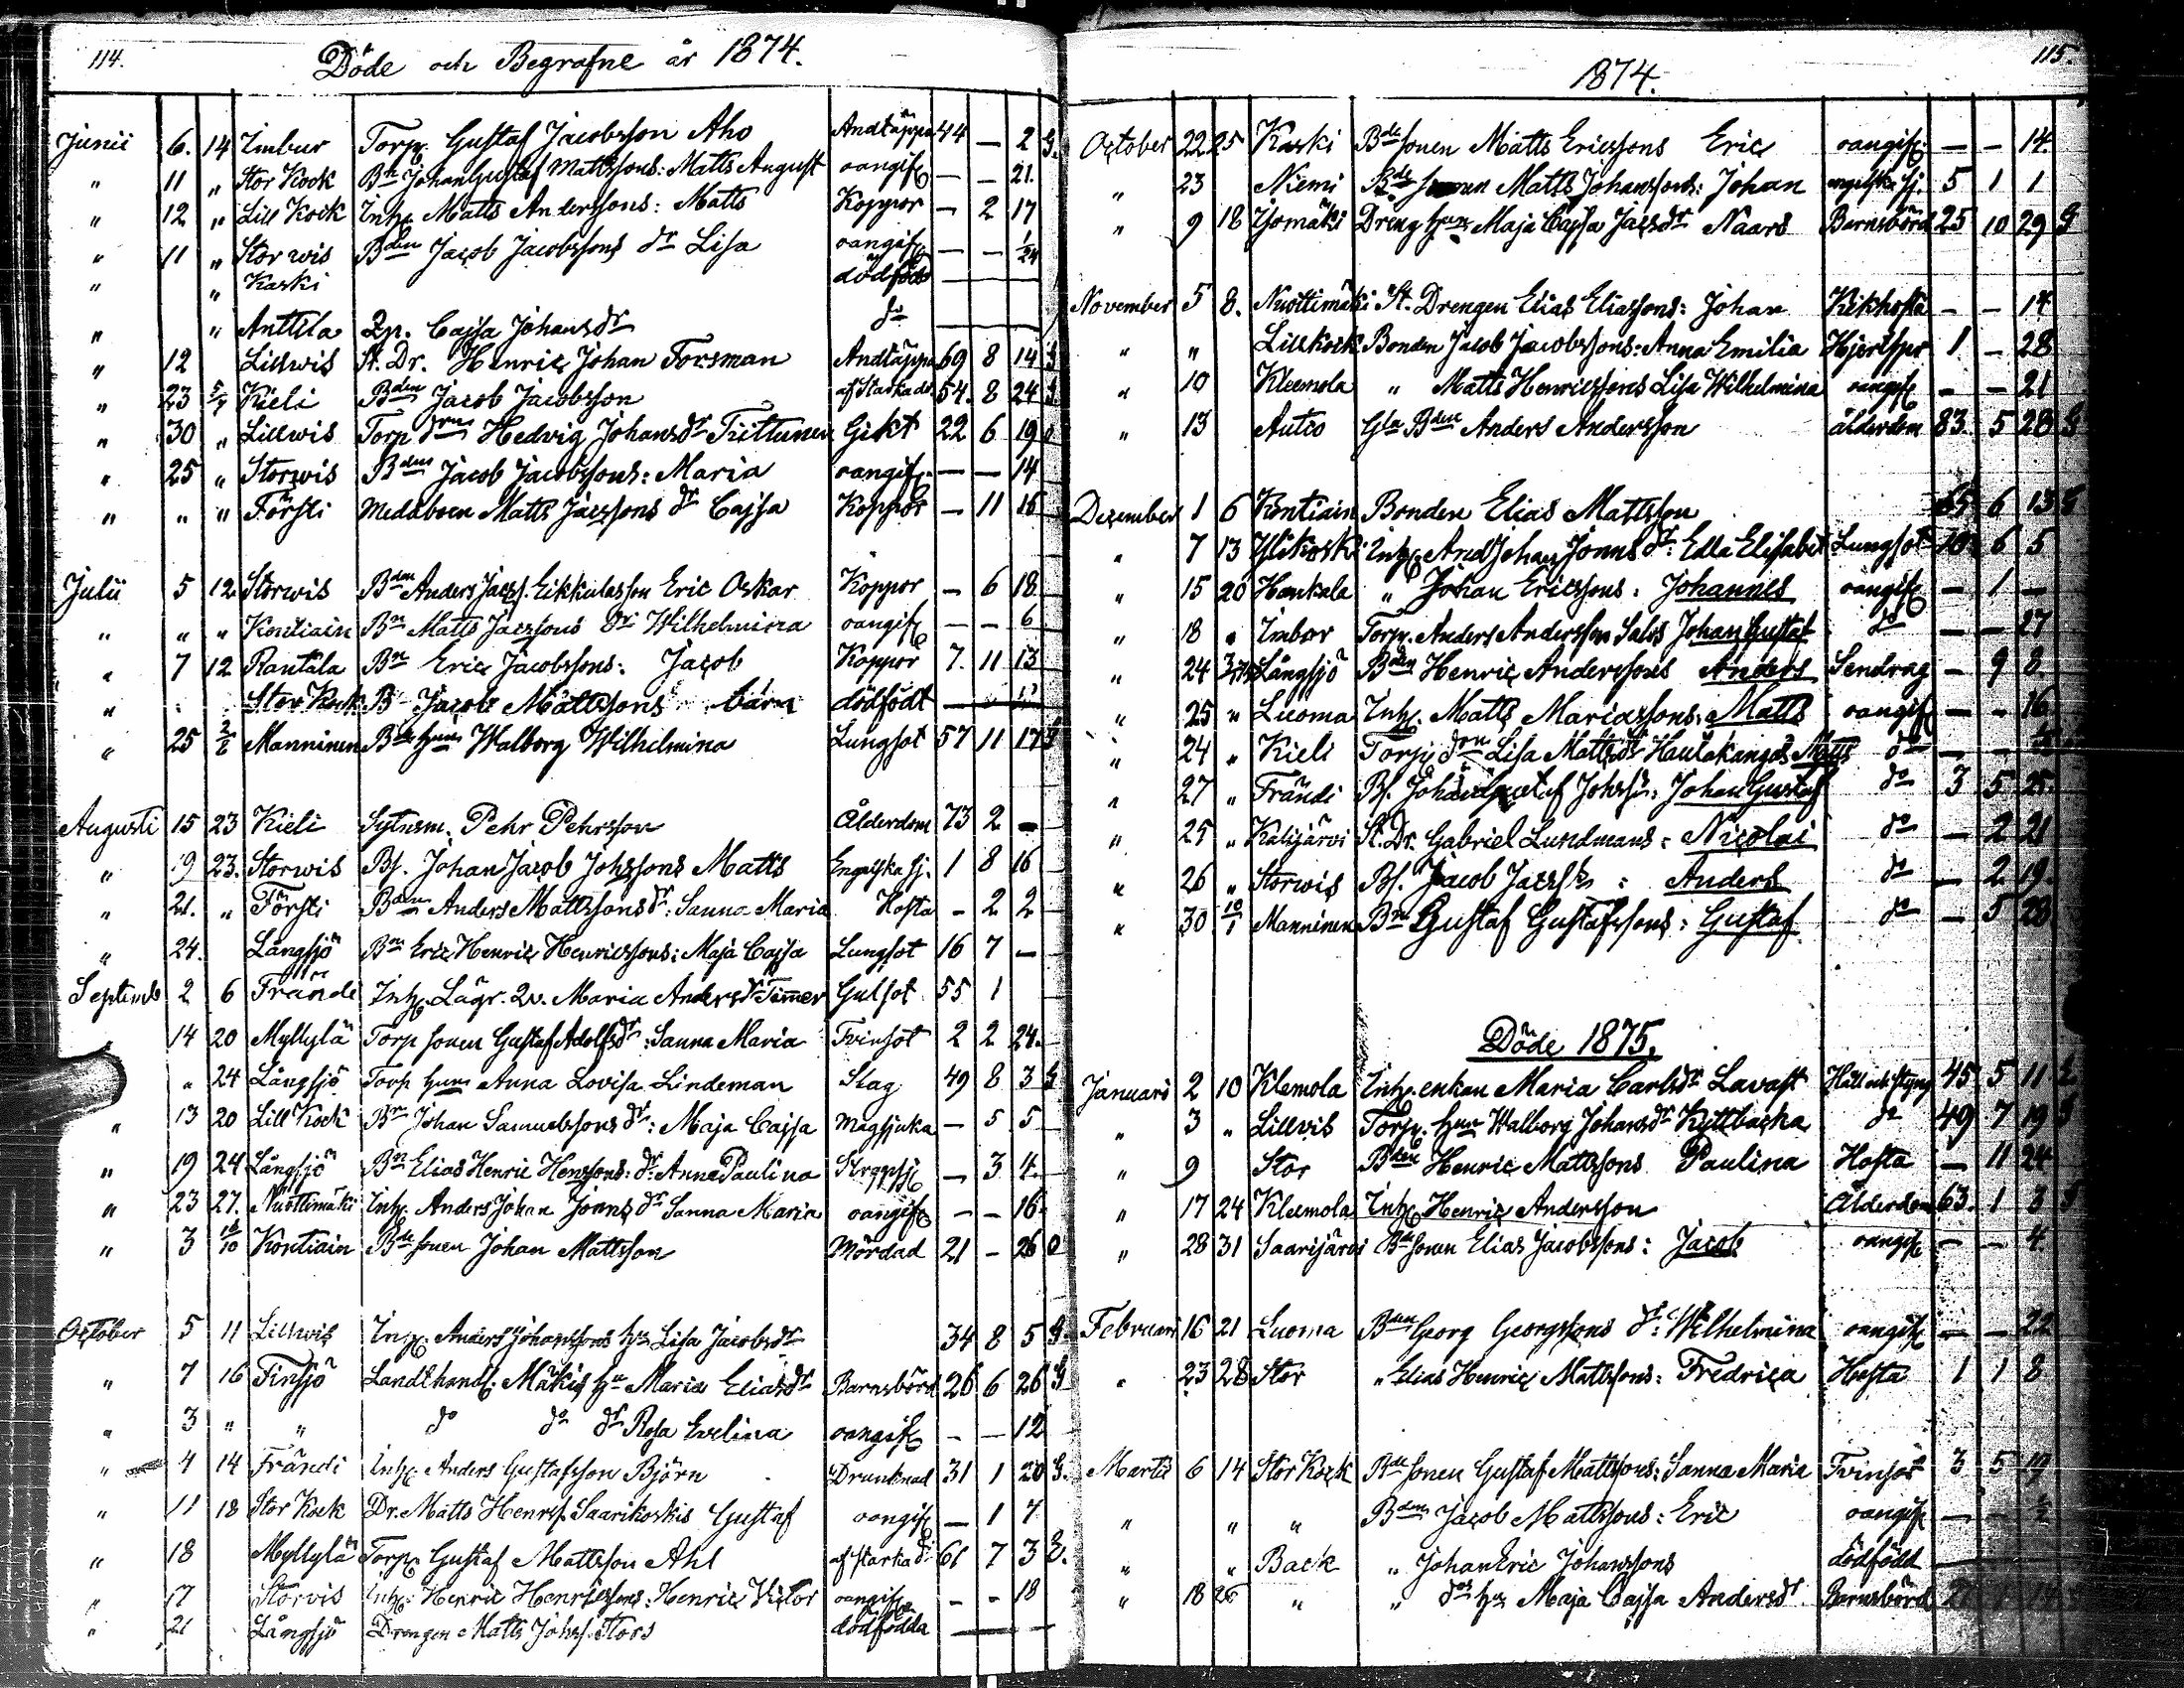 114.
Döde och Begrafne år 1874.
Junii 6. 14 Imbur Torp. Gustaf Jacobsson Aho Andtäppa 44 — 2 G.
" 11 " Stor Kock Bn Johan Gustaf Mattssons: Matts August oangif. — — 21.
" 12 " Lill Kock Inh. Matts Anderssons: Matts Koppor — 2 17
" 11 " Stor wis Bden Jacob Jacobssons dr Lisa oangif. — — 1/24
" " Kaski dödfödt —
" " Anttila Qp. Cajsa Johansdr do —
" 12 Lillwis St. Dr. Henric Johan Forsman Andtäppa 69 8 14 G
" 23 5/7 Kieli Bden Jacob Jacobsson af Starka dr. 54. 8 24 G.
" 30 " Lillwis Torp drn Hedvig Johansdr Tiittunen Gikt 22 6 19 O
" 25 " Storwis Bdens Jacob Jacobssons: Maria oangif. — — 14
" " " Försti Medaboen Matts Jacssons dr Cajsa Koppor — 11 16
Julii 5 12. Storwis Bden Anders Jacss. Eikkulasson Eric Oskar Koppor — 6 18
" " " Kontiain Bn Matts Jacssons dr Wilhelmina oangif — — 6
" 7 12 Rantala Bn Eric Jacobssons: Jacob Koppor 7. 11 13
" Stor Kock B Jacob Mattssons barn dödfödt —
" 25 2/8 Manninen Bde hun Walborg Wilhelmina Lungsot 57 11 17 G
Augusti 15 23 Kieli Sytnsm. Pehr Pehrsson Ålderdom 73 2 —
" 19 23. Storwis Bs. Johan Jacob Johssons Matts Engelska sj. 1 8 16
" 21. " Försti Bden Anders Mattssons dr: Sanna Maria Hosta - 2 2
" 24. Långsjö Bn Eric Henric Henricssons: Maja Cajsa Lungsot 16 7 —
Septemb 2 6 Frändi Inh. Lägr. Qv. Maria Andersdr Timmer Gulsot 55 1
14 20 Myllylä Torp sonen Gustaf Adolfs dr: Sanna Maria Tvinsot 2 2 24.
" 24 Långsjö Torp hun Anna Lovisa Lindeman Slag 49 8 3 G
" 13 20 Lill Kock Bn Johan Samuelssons dr: Maja Cajsa Magsjuka — 5 5
" 19 24 Långsjö Bn Elias Henric Henrssons: dr Anna Paulina Strypsj — 3 4.
" 23 27. Nuottimäki Inh. Anders Johan Jonns dr Sanna Maria oangif — — 16.
" 3 /10 Kontiain Bde sonen Johan Mattsson Mördad 21 - 26 O
October 5 11 Lillwis Inh. Anders Johanssons hu Lisa Jacobsdr 34 8 5 G.
" 7 16 Finsjö Landthandl. Mäkis hu Maria Eliasdr Barnsbörd 26 6 26 G
" 3 " " do do dr Rosa Evelina oangif — — 12
" 4 14 Frändi Inh. Anders Gustafsson Björn Drunknad 31 1 20 G.
" 11 18 Stor Kock Dr. Matts Henrss. Saarikoskis Gustaf oangif — 1 7
" 18 Myllylä Torp. Gustaf Mattsson Ahl af starka dr 61 7 3 E.
" 17 Storvis Inh: Henric Henricssons: Henric Victor oangif — - 18
" 21 Långsjö Drengen Matts Johss. Stors dödfödda —
1874.
115.
October 22 25 Kaski Bde sonen Matts Ericssons Eric oangif. — — 14.
" 23 Niemi Bde sonen Matts Johanssons: Johan engelska sj. 5 1 1
" 9 18 Ijomäki Dreng hun Maja Cajsa Jacsdr Naars Barnsbörd 25 10 29 G
November 5 8. Nuottimäki St. Drengen Elias Eliassons: Johan Kikhosta — — 14
" " Lill kock Bonden Jacob Jacobssons: Anna Emilia Hjertspr 1 — 28
" 10 Kleemola " Matts Henricssons Lisa Wilhelmina oangif — — 21
" 13 Autio Gla Bden Anders Andersson ålderdom 83. 5 28 G
December 1 6 Kontiain Bonden Elias Mattsson 65 6 13 G
" 7 13 Ylikoski Inh. And Johan Jonns dr: Edla Elisabet Lungsot 10 6 5
" 15 20 Hankala " Johan Ericssons: Johannes oangif — 1 —
" 18 " Imbur Torp. Anders Andersson Salos Johan Gustaf do — — 27
" 24 Långsjö Bden Henric Anderssons Anders Sendrag — 9 8.
" 25 " Luoma Inh. Matts Mariassons: Matts oangif — - 16
" 24 " Kieli Torp. drn Lisa Mattsdr Hautakangas Matts do — —
" 27 " Frändi Bs. Johan Gustaf Johssn: Johan Gustaf do 3 5 25.
" 25 " Kalijärvi St. Dr. Gabriel Lundmans: Nicolai do — 2 21
" 26 " Storwis Bs. Jacob Jacssns: Anders do — 2 19.
" 30 10/1 Manninen Bn Gustaf Gustafssons: Gustaf do — 5 28
Döde 1875.
Januari 2 10 Klemola Inh. enkan Maria Carlsdr Lavast Håll och styng 45 5 11 E
" 3 " Lillvis Torp. hun Walborg Johansdr Kyttbacka do 49 7 19 G
" 9 Stor Bden Henric Mattssons Paulina Hosta — 11 24
" 17 24 Kleemola Inh. Henric Andersson Ålderdom 63. 1 3 G
" 28 31 Saarijärvi Bde sonen Elias Jacobssons: Jacob oangif — — 4.
Februari 16 21 Luoma Bden Georg Georgssons dr: Wilhelmina oangif — — 22
" 23 28 Stor " Elias Henric Mattssons: Fredrica Hosta 1 1 8
Martii 6 14 Stor Kock Bde sonen Gustaf Mattssons: Sanna Maria Tvinsot 3 5 19
" " " Bdens Jacob Mattssons: Eric oangif — — 1/2
" " Back " Johan Eric Johanssons dödfödd —
" 18 26 " " dos hu Maja Cajsa Andersdr Barnsbörd